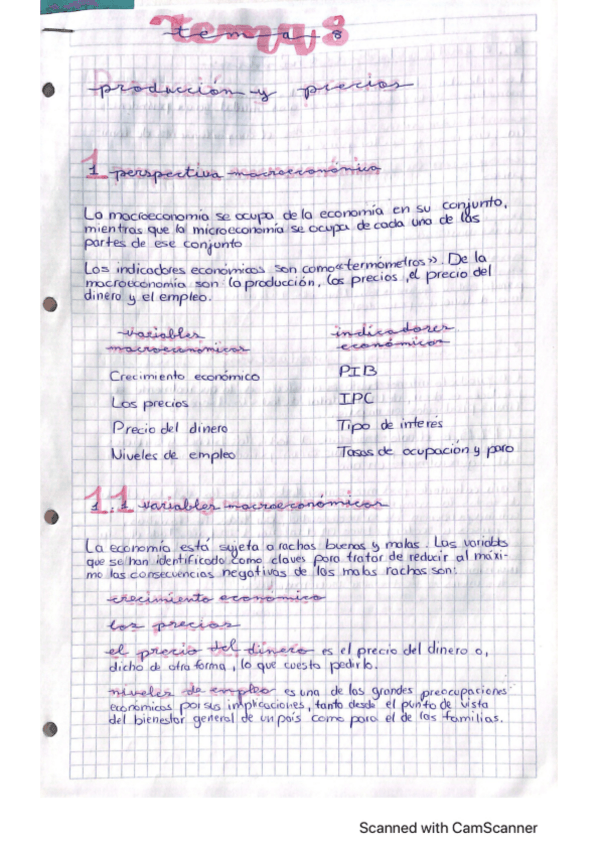 tema 8
producción y precios
1 perspectiva macroeconómica
La macroeconomía se ocupa de la economía en su conjunto,
mientras que la microeconomía se ocupa de cada una de las
partes de ese conjunto
Los indicadores económicos son como «termómetros». De la
macroeconomía son la producción, los precios, el precio del
dinero y el empleo.
variables
macroeconómicas
indicadores
económicos
Crecimiento económico
PIB
Los precios
IPC
Precio del dinero
Tipo de interés
Niveles de empleo
Tasas de ocupación y paro
1.1 variables macroeconómicas
La economía está sujeta a rachas buenas y malas. Las variables
que se han identificado como claves para tratar de reducir al máxi-
mo las consecuencias negativas de las malas rachas son:
crecimiento económico
los precios
el precio del dinero es el precio del dinero o,
dicho de otra forma, lo que cuesta pedirlo.
niveles de empleo es una de las grandes preocupaciones
económicas por sus implicaciones, tanto desde el punto de vista
del bienestar general de un país como para el de las familias.
Scanned with CamScanner